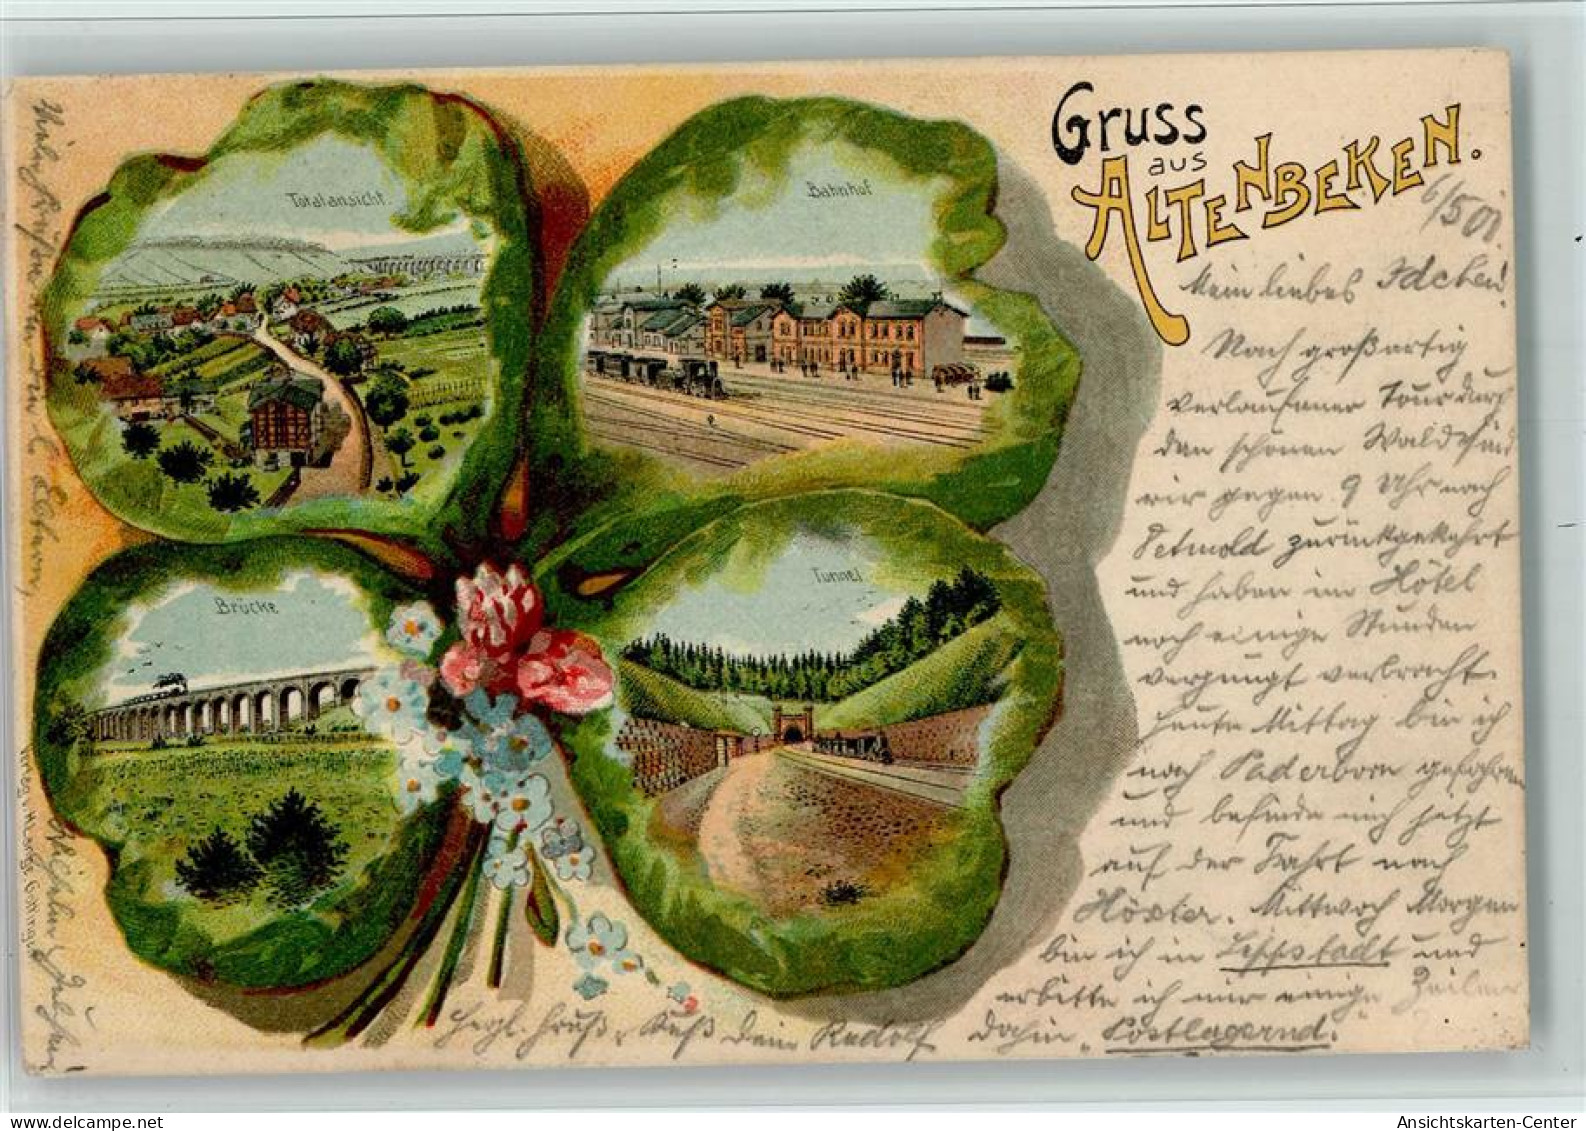 Gruss
aus
ALTENBEKEN.
Totalansicht.
Bahnhof
Brücke
Tunnel
6/5 01.
Mein liebes Idchen!
Nach großartig
verlaufener Tour durch
den schönen Wald sind
wir gegen 9 Uhr nach
Detmold zurückgekehrt
und haben im Hôtel
noch einige Stunden
vergnügt verbracht.
Heute Mittag bin ich
nach Paderborn gefahren
und befinde mich jetzt
auf der Fahrt nach
Höxter. Mittwoch Morgen
bin ich in Lippstadt und
erbitte ich mir einige Zeilen
dahin "Postlagernd.
Herzl. Gruß u. Kuß Dein Rudolf
Verlag v.
delcampe.net
Ansichtskarten-Center